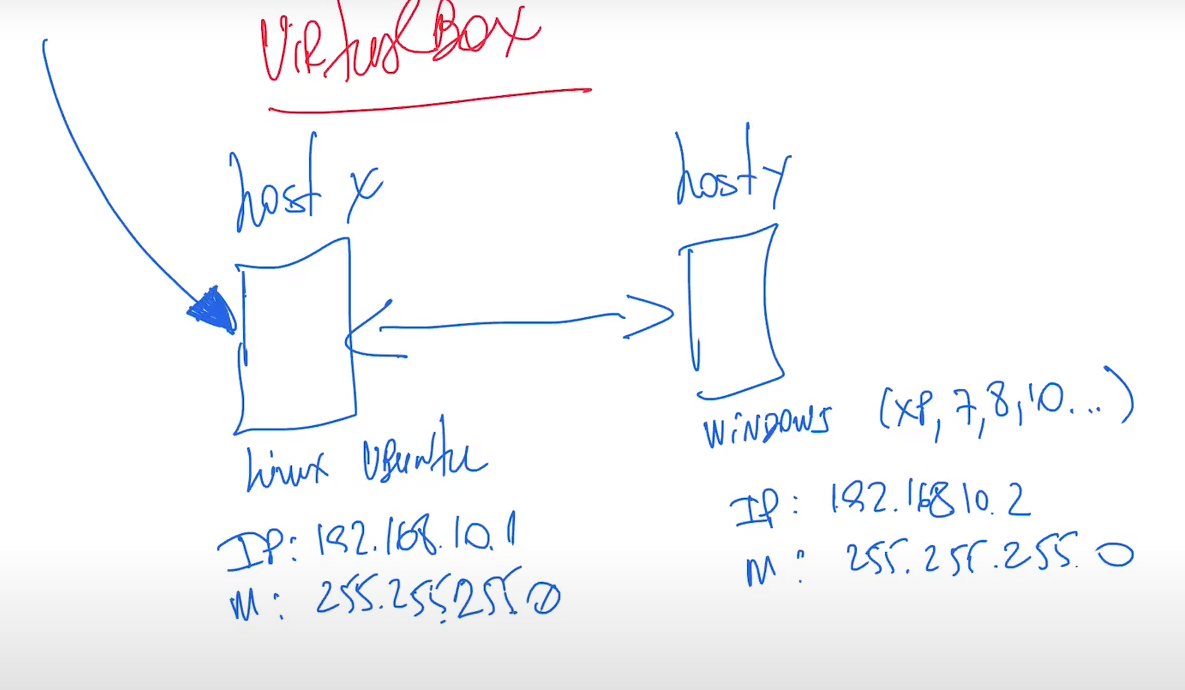 VirtualBox
host x
host y
Linux Ubuntu
IP: 192.168.10.1
M: 255.255.255.0
WINDOWS (XP, 7, 8, 10...)
IP: 192.168 10.2
M: 255.255.255.0